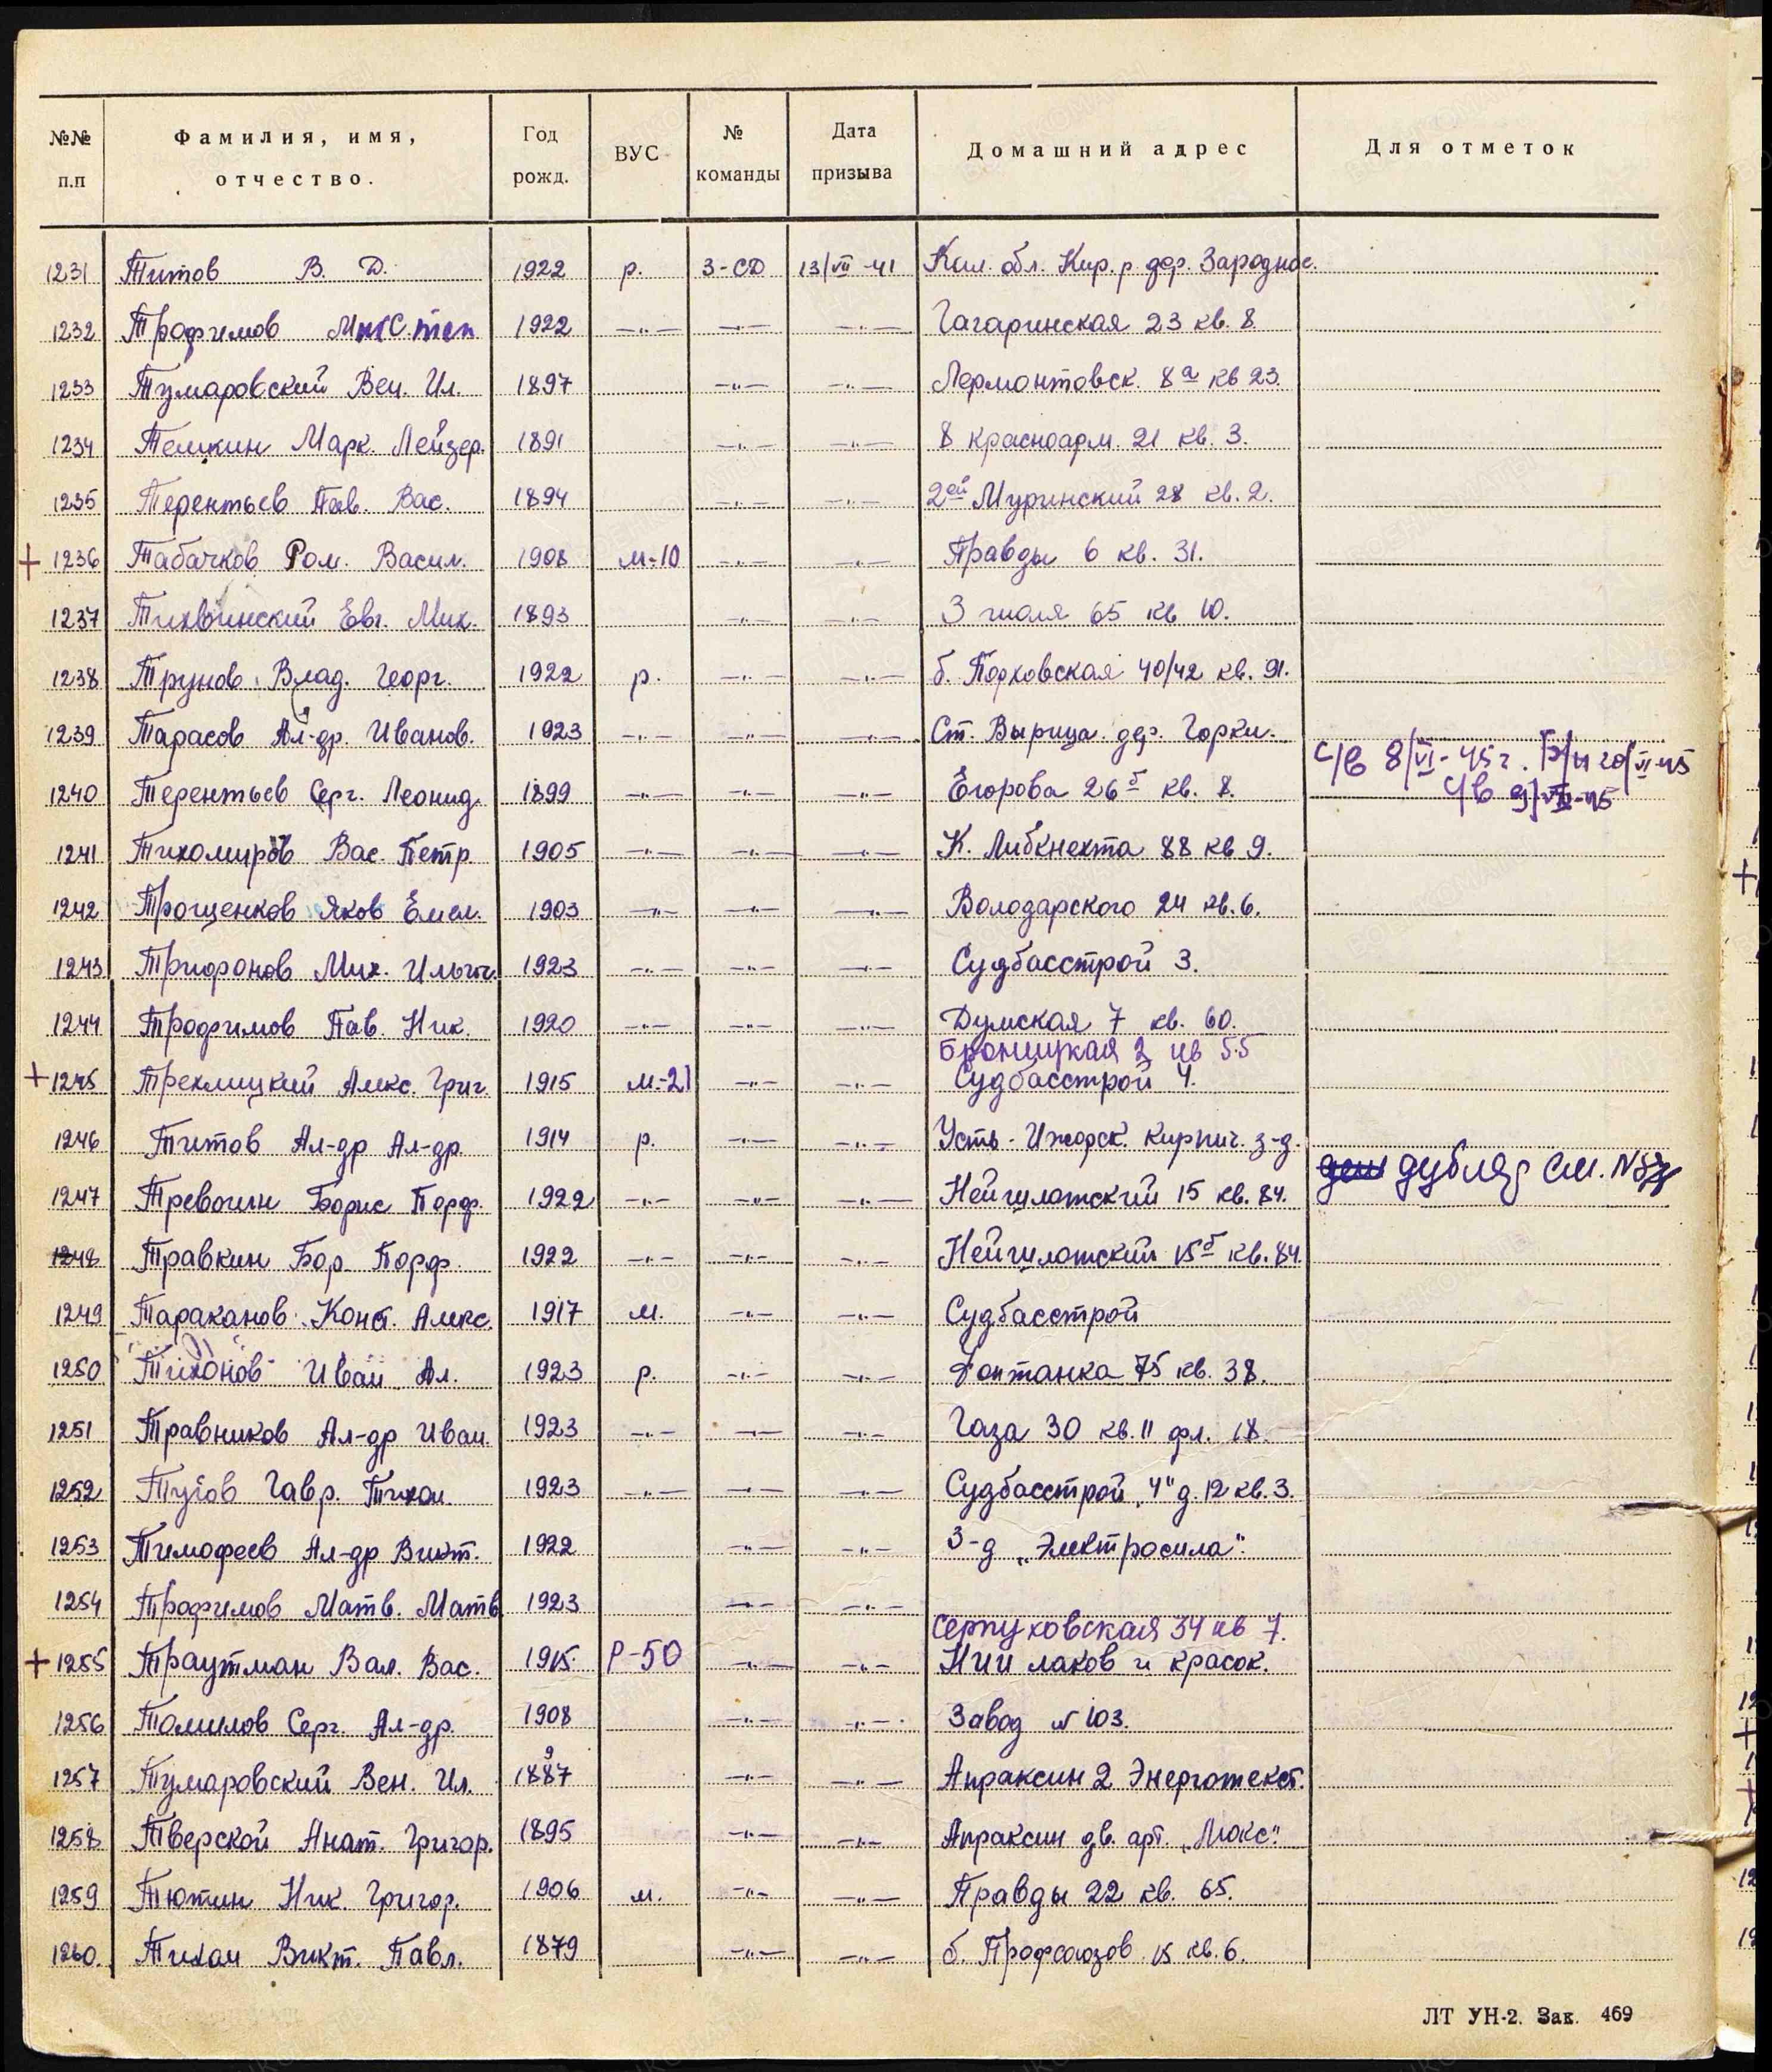 №№ п.п Фамилия, имя, отчество. Год рожд. ВУС № команды Дата призыва Домашний адрес Для отметок
1231 Титов В. Д. 1922 р. 3-СД 13/VII-41 Кал. обл. Кир. р. дер. Зародное.
1232 Трофимов 1922 —"— —"— —"— Гагаринская 23 кв. 8.
1233 Тумаровский Вен. Ил. 1897 —"— —"— Лермонтовск. 8а кв 23.
1234 Темкин Марк. Лейзер. 1891 —"— —"— 8 красноарм. 21 кв. 3.
1235 Терентьев Пав. Вас. 1894 —"— —"— 2ой Муринский 28 кв. 2.
+ 1236 Табачков Ром. Васил. 1908 м-10 —"— —"— Правды 6 кв. 31.
1237 Тихвинский Евг. Мих. 1893 —"— —"— 3 июля 65 кв 10.
1238 Трунов Влад. Георг. 1922 р. —"— —"— б. Порховская 40/42 кв. 91.
1239 Тарасов Ал-др. Иванов. 1923 —"— —"— —"— Ст. Вырица дер. Горки.
с/в 8/VI-45г.
1240 Терентьев Серг. Леонид. 1899 —"— —"— —"— Егорова 26б кв. 8.
1241 Тихомиров Вас. Петр. 1905 —"— —"— —"— К. Либкнехта 88 кв 9.
1242 Трощенков Яков Емел. 1903 —"— —"— —"— Володарского 24 кв. 6.
1243 Трифонов Мих. Ильич. 1923 —"— —"— —"— Судбасстрой 3.
1244 Трофимов Пав. Ник. 1920 —"— —"— —"— Думская 7 кв. 60.
Бронницкая 2 кв 55
+ 1245 Трехлицкий Алекс. Григ. 1915 м-21 —"— —"— Судбасстрой 4.
1246 Титов Ал-др Ал-др. 1914 р. —"— —"— Усть-Ижорск. кирпич. з-д.
дубляр см. №
1247 Тревогин Борис Порф. 1922 —"— —"— —"— Нейшлотский 15 кв. 84.
1248 Травкин Бор. Порф. 1922 —"— —"— —"— Нейшлотский 15б кв. 84.
1249 Тараканов Конст. Алекс. 1917 м. —"— —"— Судбасстрой
1250 Тихонов Иван Ал. 1923 р. —"— —"— Фонтанка 75 кв. 38.
1251 Травников Ал-др Иван. 1923 —"— —"— —"— Газа 30 кв. 11 фл. 18.
1252 Тугов Гавр. Тихон. 1923 —"— —"— —"— Судбасстрой „4" д. 12 кв. 3.
1253 Тимофеев Ал-др Викт. 1922 —"— —"— З-д „Электросила".
1254 Трофимов Матв. Матв 1923 —"— —"—
Серпуховская 34 кв 7.
+ 1255 Траутман Вал. Вас. 1915 Р-50 —"— —"— НИИ лаков и красок.
1256 Томилов Серг. Ал-др. 1908 —"— —"— Завод № 103.
9
1257 Тумаровский Вен. Ил. 1887 —"— —"— Апраксин 2 Энерготекст.
1258 Тверской Анат. Григор. 1895 —"— —"— Апраксин дв. арт. „Люкс".
1259 Тютин Ник. Григор. 1906 м. —"— —"— Правды 22 кв. 65.
1260. Тихан Викт. Павл. 1879 —"— —"— б. Профсоюзов 15 кв. 6.
ЛТ УН-2. Зак. 469